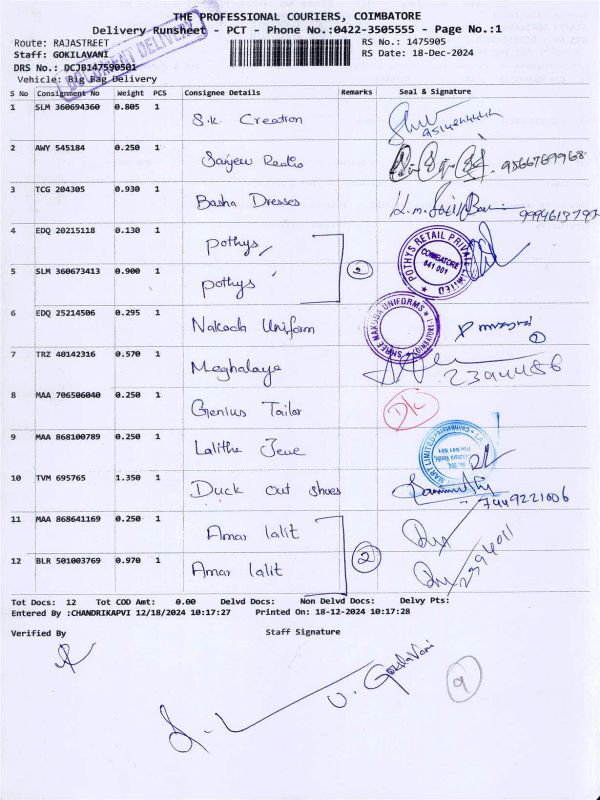 THE PROFESSIONAL COURIERS, COIMBATORE
Delivery Runsheet - PCT - Phone No.:0422-3505555 - Page No.:1
Route: RAJASTREET
RS No.: 1475905
Staff: GOKILAVANI
RS Date: 18-Dec-2024
DRS No.: DCJB147590501
DOCUMENT DELIVERY
Vehicle: Big Bag Delivery
S No Consignment No Weight PCS Consignee Details Remarks Seal & Signature
1 SLM 360694360 0.805 1 S.K. Creation
2 AWY 545184 0.250 1 Sanjeev Radio 9566769968
3 TCG 204305 0.930 1 Basha Dresses
4 EDQ 20215118 0.130 1 pothys
POTHYS RETAIL PRIVATE LIMITED
COIMBATORE
641 001
5 SLM 360673413 0.900 1 pothys 2
6 EDQ 25214506 0.295 1 Nakoda Uniform
SHREE NAKODA UNIFORMS
7 TRZ 40142316 0.570 1 Meghalaya 2394486
8 MAA 706506040 0.250 1 Genius Tailor D/L
9 MAA 868100789 0.250 1 Lalitha Jewe
MART LIMITED
10 TVM 695765 1.350 1 Duck out shoes 7449221006
11 MAA 868641169 0.250 1 Amar lalit
12 BLR 501003769 0.970 1 Amar lalit 2 2394011
Tot Docs: 12 Tot COD Amt: 0.00 Delvd Docs: Non Delvd Docs: Delvy Pts:
Entered By :CHANDRIKAPVI 12/18/2024 10:17:27 Printed On: 18-12-2024 10:17:28
Verified By Staff Signature
U. GokilaVani
9